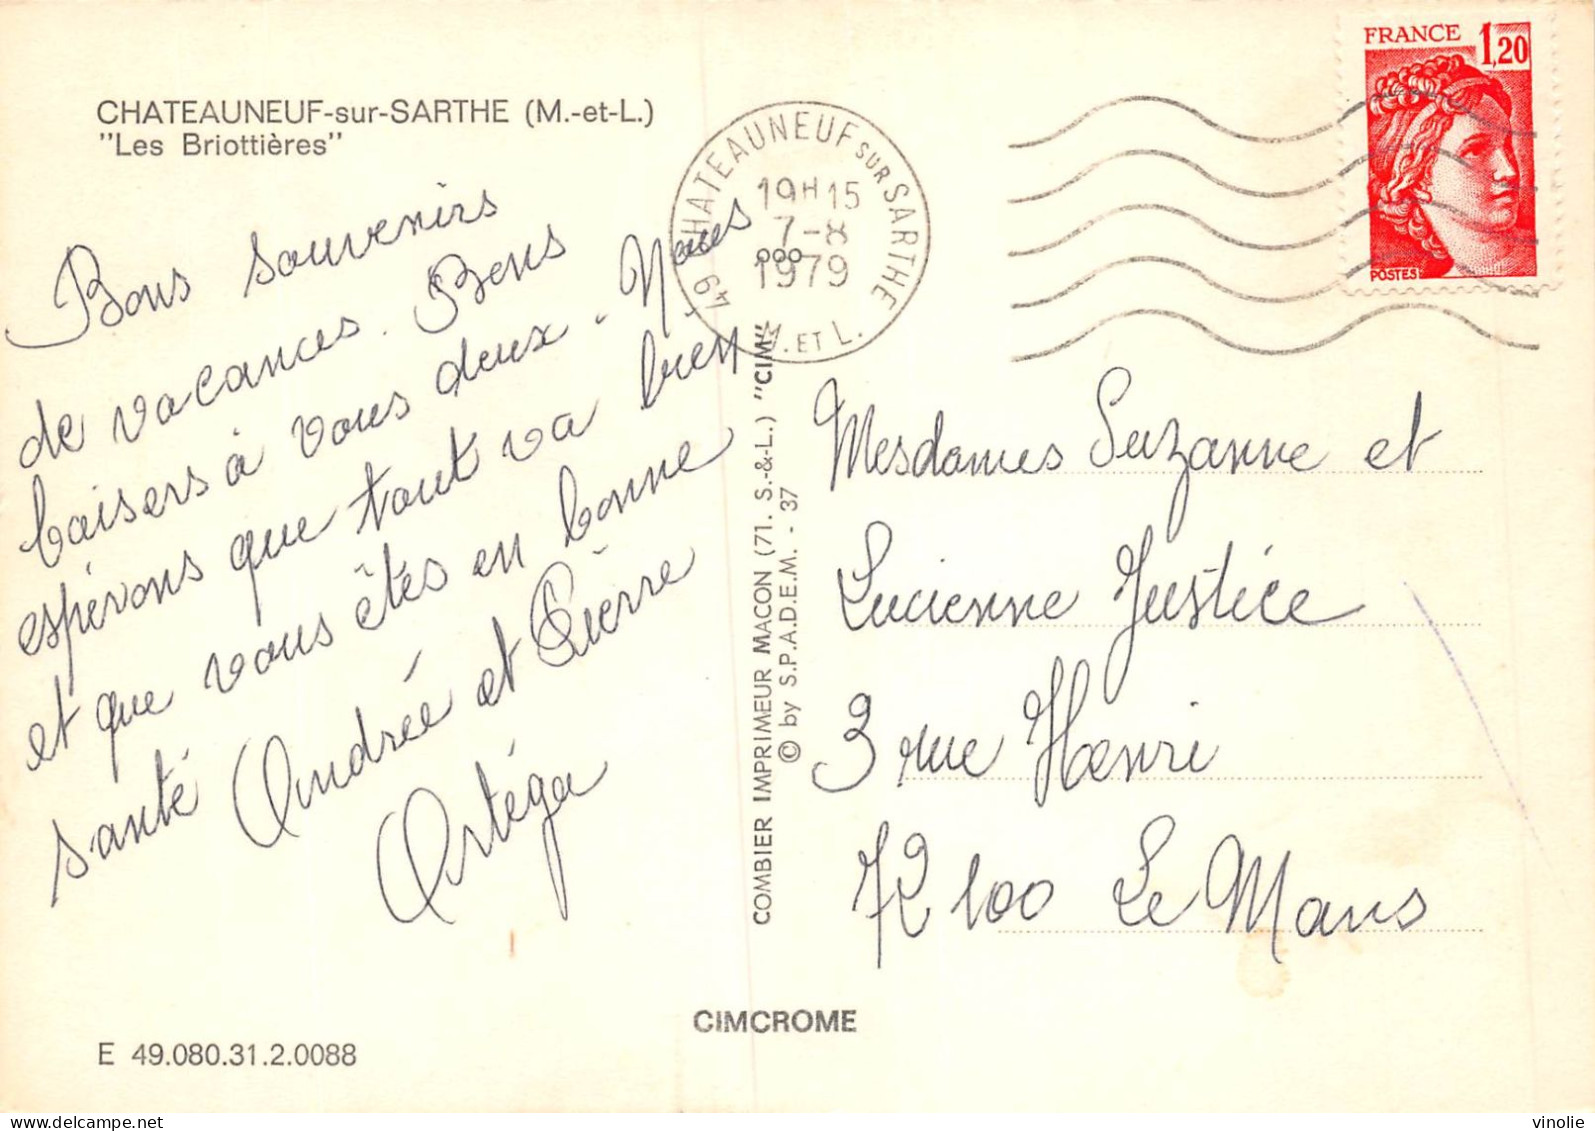 CHATEAUNEUF-sur-SARTHE (M.-et-L.)
"Les Briottières"
Bons souvenirs
de vacances. Bons
baisers à vous deux. Nous
espérons que tout va bien
et que vous êtes en bonne
santé Andrée et Pierre
Ortéga
49 CHATEAUNEUF SUR SARTHE
19H15
7-8
1979
M. ET L.
FRANCE 1,20
POSTES
COMBIER IMPRIMEUR MACON (71. S.-&-L.) "CIM"
© by S.P.A.D.E.M. - 37
Mesdames Suzanne et
Lucienne Justice
3 rue Henri
72100 Le Mans
CIMCROME
E 49.080.31.2.0088
www.delcampe.net
vinolie